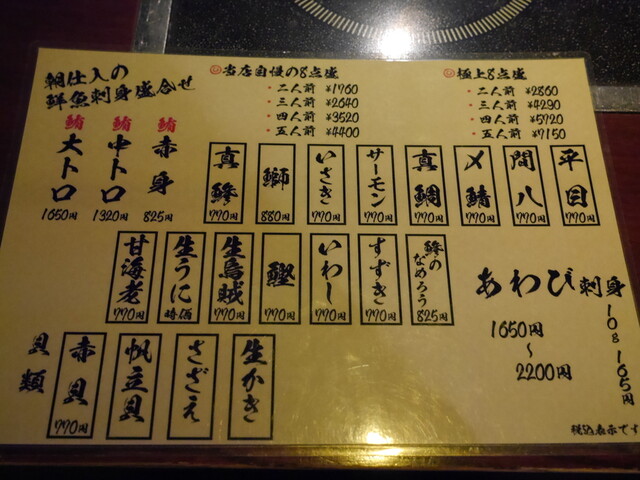 朝仕入の
鮮魚刺身盛合せ
当店自慢の8点盛
・二人前 ¥1760
・三人前 ¥2640
・四人前 ¥3520
・五人前 ¥4400
極上8点盛
・二人前 ¥2860
・三人前 ¥4290
・四人前 ¥5720
・五人前 ¥7150
鮪 大トロ 1650円
鮪 中トロ 1320円
鮪 赤身 825円
真鯵 770円
鰤 880円
いさき 770円
サーモン 770円
真鯛 770円
〆鯖 770円
間八 770円
平目 770円
甘海老 770円
生うに 時価
生烏賊 770円
鰹 770円
いわし 770円
すずき 770円
鯵のなめろう 825円
あわび刺身
10g 165円
1650円
～
2200円
貝類
赤貝 770円
帆立貝
さざえ
生かき
税込表示です